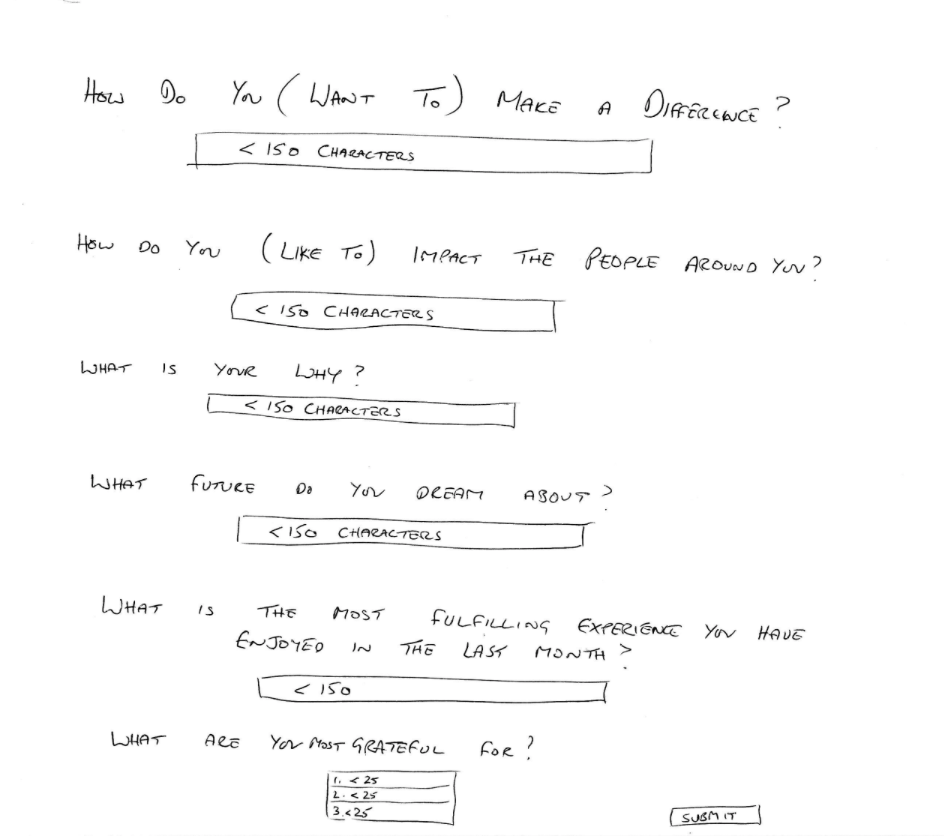 How Do You (Want To) Make A Difference?
< 150 Characters
How Do You (Like To) Impact The People Around You?
< 150 Characters
What Is Your Why?
< 150 Characters
What Future Do You Dream About?
< 150 Characters
What Is The Most Fulfilling Experience You Have
Enjoyed In The Last Month?
< 150
What Are You Most Grateful For?
1. < 25
2. < 25
3. < 25
Submit